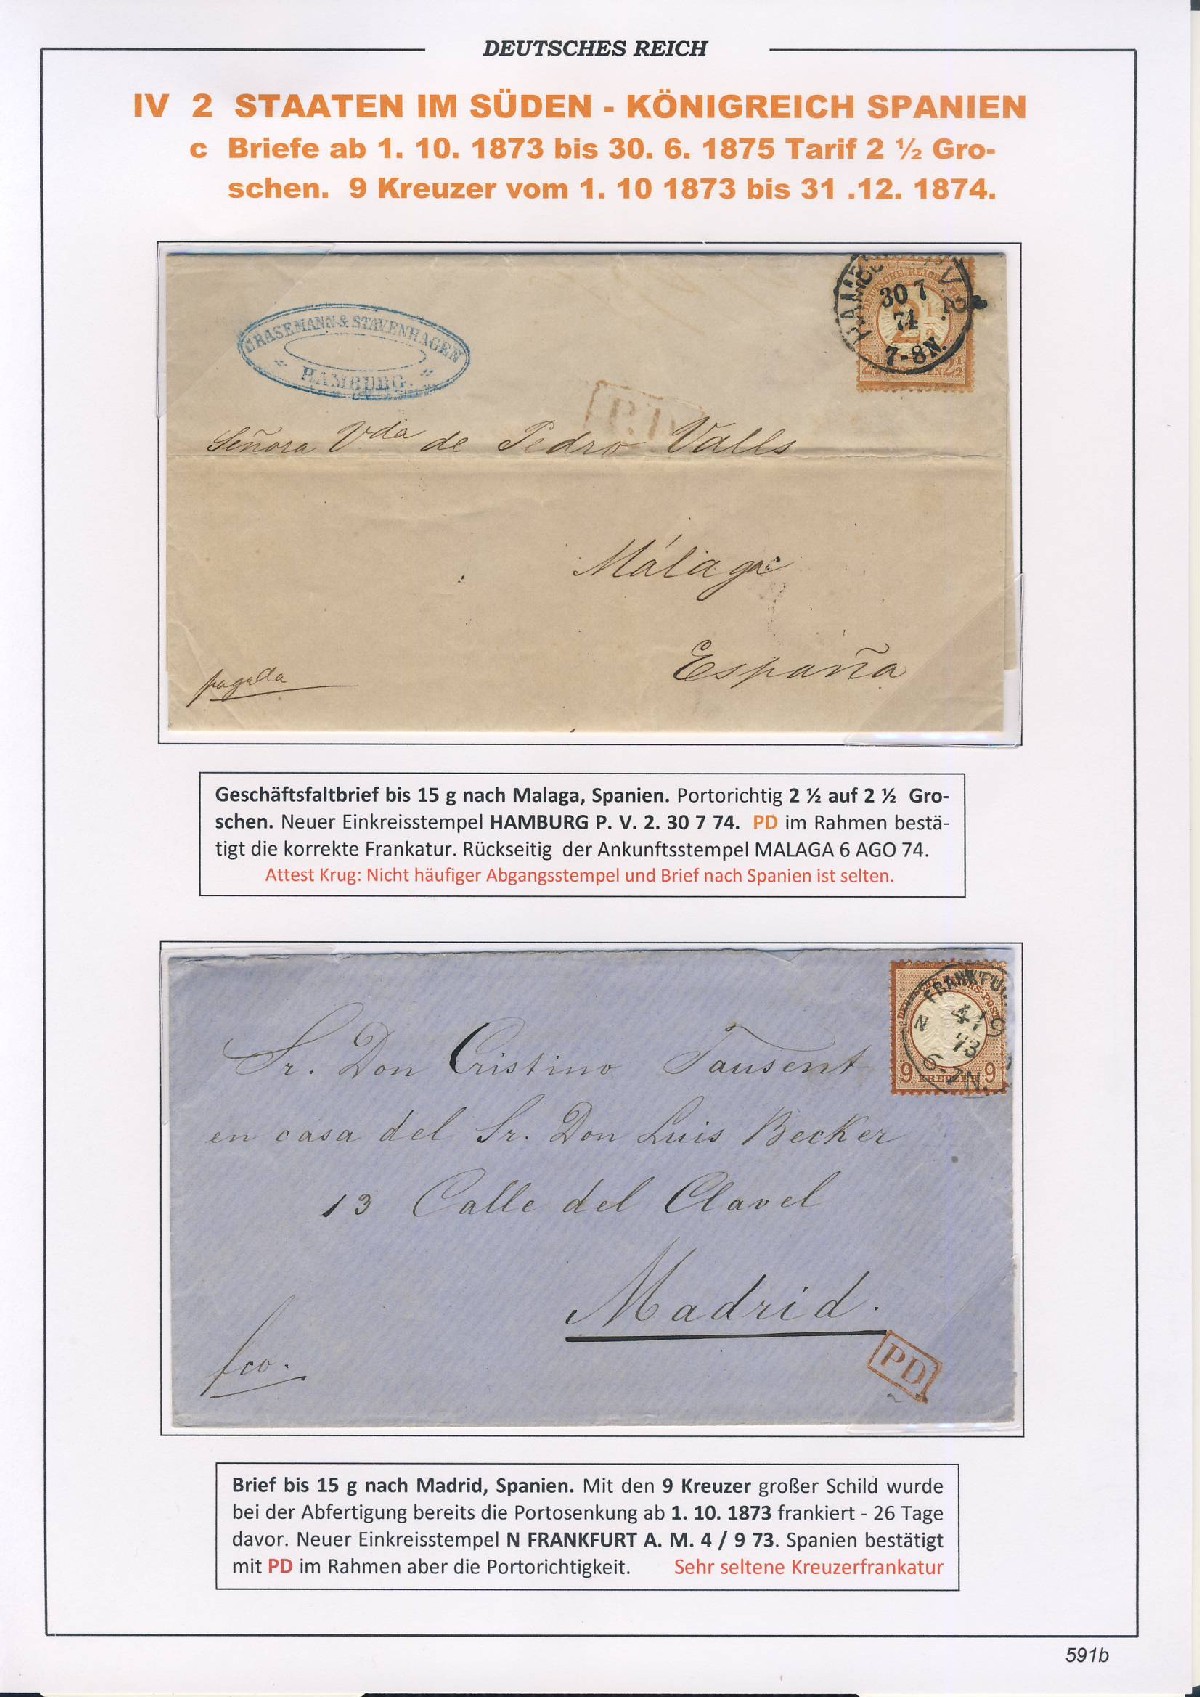 DEUTSCHES REICH
IV 2 STAATEN IM SÜDEN - KÖNIGREICH SPANIEN
c Briefe ab 1. 10. 1873 bis 30. 6. 1875 Tarif 2 ½ Gro-
schen. 9 Kreuzer vom 1. 10 1873 bis 31 .12. 1874.
GRASEMANN & STAVENHAGEN
HAMBURG.
30 7
74
7-8N
P.D.
Señora Vda de Pedro Valls
Málaga
España
pagada
Geschäftsfaltbrief bis 15 g nach Malaga, Spanien. Portorichtig 2 ½ auf 2 ½ Gro-
schen. Neuer Einkreisstempel HAMBURG P. V. 2. 30 7 74. PD im Rahmen bestä-
tigt die korrekte Frankatur. Rückseitig der Ankunftsstempel MALAGA 6 AGO 74.
Attest Krug: Nicht häufiger Abgangsstempel und Brief nach Spanien ist selten.
N
4/9
73
6-7N.
9 KREUZER 9
Sr. Don Cristino Tausent
en casa del Sr. Don Luis Becker
13 Calle del Clavel
Madrid.
fco.
PD
Brief bis 15 g nach Madrid, Spanien. Mit den 9 Kreuzer großer Schild wurde
bei der Abfertigung bereits die Portosenkung ab 1. 10. 1873 frankiert - 26 Tage
davor. Neuer Einkreisstempel N FRANKFURT A. M. 4 / 9 73. Spanien bestätigt
mit PD im Rahmen aber die Portorichtigkeit. Sehr seltene Kreuzerfrankatur
591b